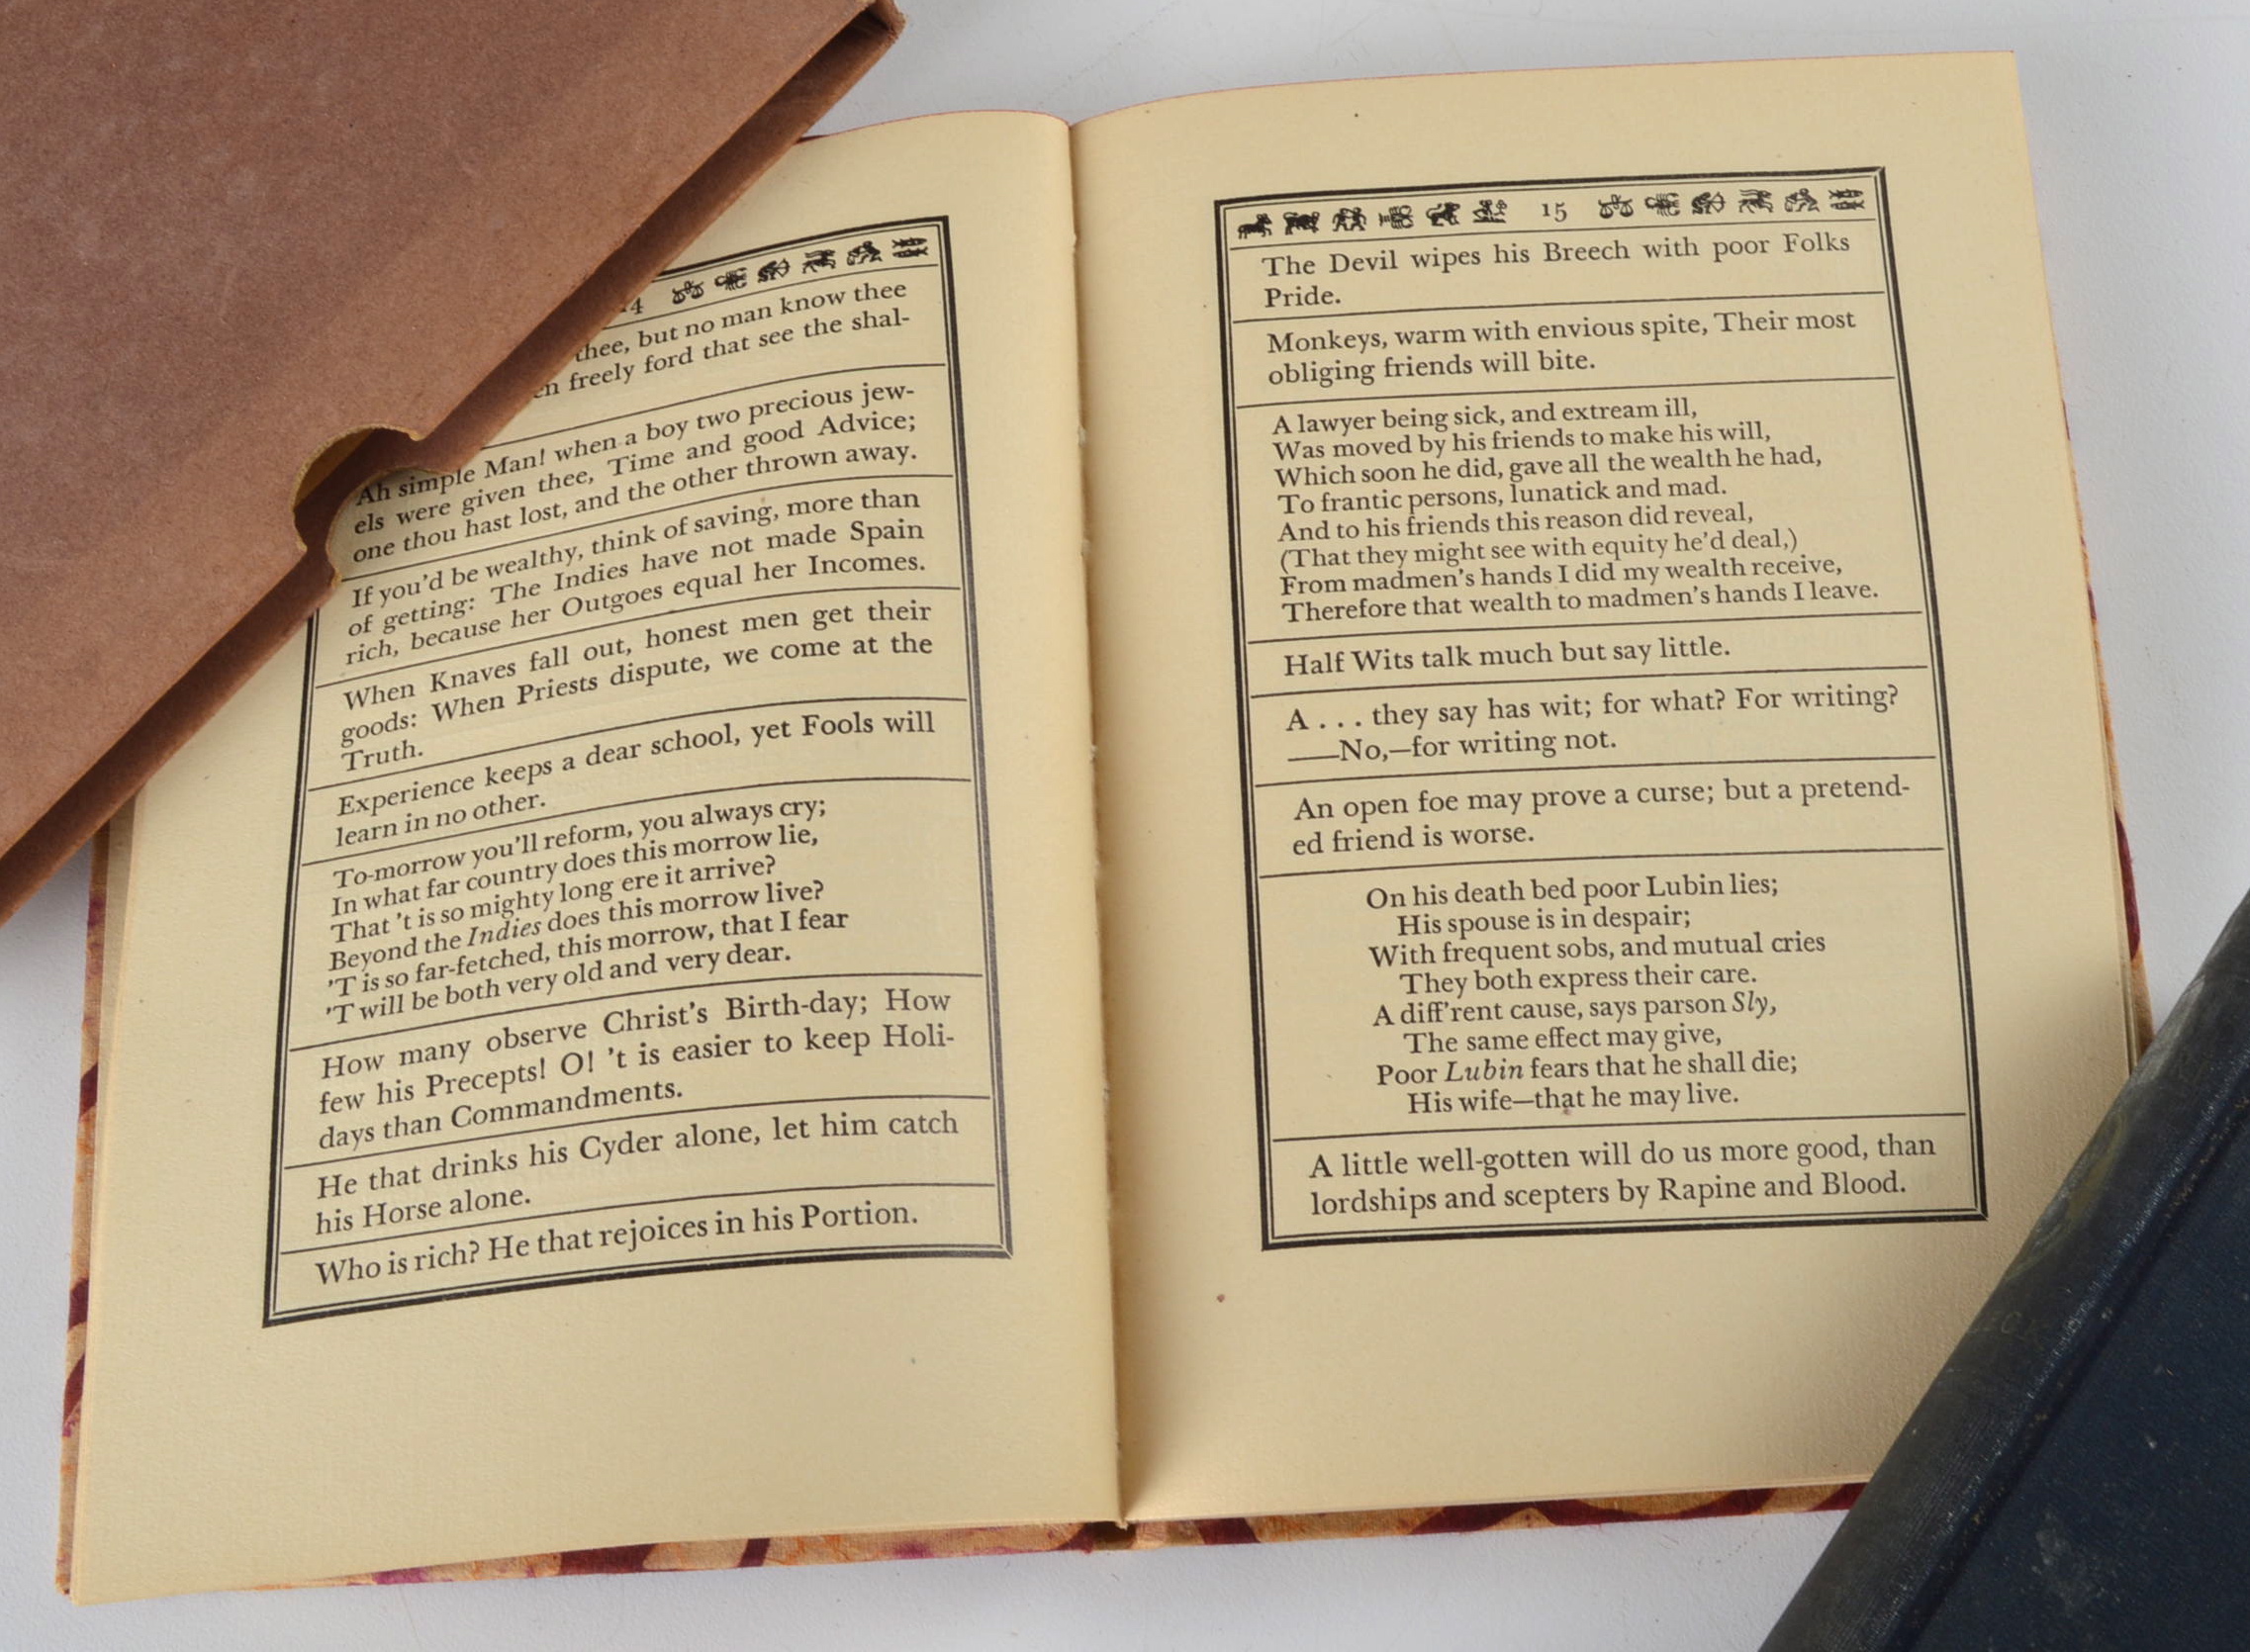 thee, but no man know thee
freely ford that see the shal-
Ah simple Man! when a boy two precious jew-
els were given thee, Time and good Advice;
one thou hast lost, and the other thrown away.
If you'd be wealthy, think of saving, more than
of getting: The Indies have not made Spain
rich, because her Outgoes equal her Incomes.
When Knaves fall out, honest men get their
goods: When Priests dispute, we come at the
Truth.
Experience keeps a dear school, yet Fools will
learn in no other.
To-morrow you'll reform, you always cry;
In what far country does this morrow lie,
That 't is so mighty long ere it arrive?
Beyond the Indies does this morrow live?
'T is so far-fetched, this morrow, that I fear
'T will be both very old and very dear.
How many observe Christ's Birth-day; How
few his Precepts! O! 't is easier to keep Holi-
days than Commandments.
He that drinks his Cyder alone, let him catch
his Horse alone.
Who is rich? He that rejoices in his Portion.
15
The Devil wipes his Breech with poor Folks
Pride.
Monkeys, warm with envious spite, Their most
obliging friends will bite.
A lawyer being sick, and extream ill,
Was moved by his friends to make his will,
Which soon he did, gave all the wealth he had,
To frantic persons, lunatick and mad.
And to his friends this reason did reveal,
(That they might see with equity he'd deal,)
From madmen's hands I did my wealth receive,
Therefore that wealth to madmen's hands I leave.
Half Wits talk much but say little.
A . . . they say has wit; for what? For writing?
——No,—for writing not.
An open foe may prove a curse; but a pretend-
ed friend is worse.
On his death bed poor Lubin lies;
His spouse is in despair;
With frequent sobs, and mutual cries
They both express their care.
A diff'rent cause, says parson Sly,
The same effect may give,
Poor Lubin fears that he shall die;
His wife—that he may live.
A little well-gotten will do us more good, than
lordships and scepters by Rapine and Blood.